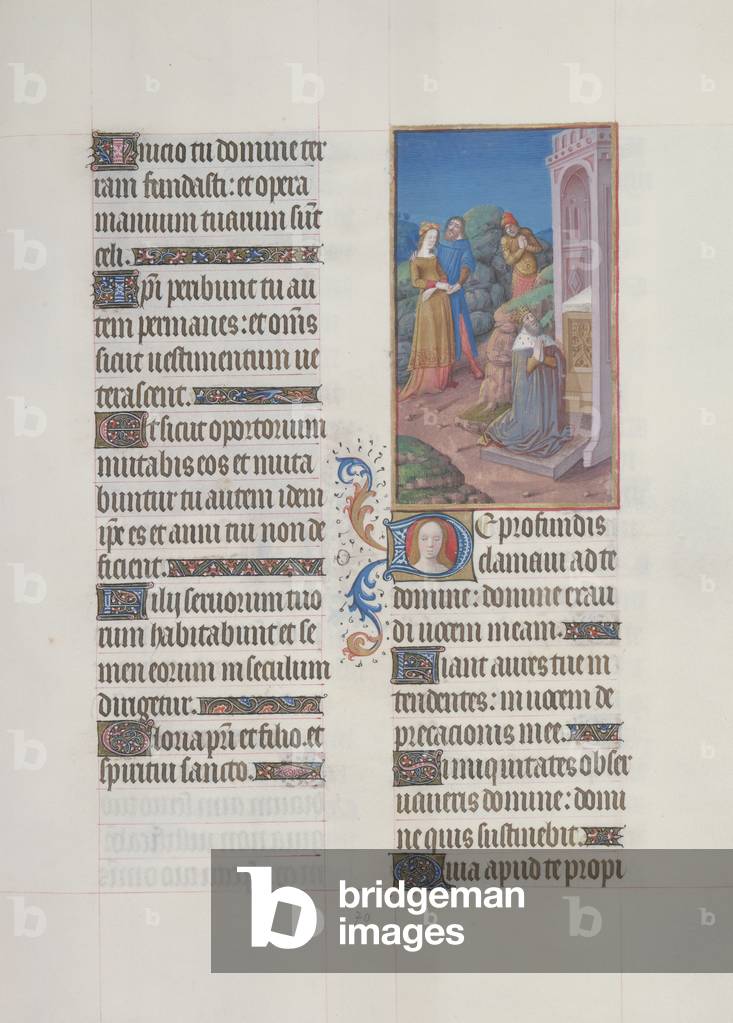 Inicio tu domine ter
ram fundasti: et opera
manuum tuarum sūt
celi.
Ipi peribunt tu au
tem permanes: et oms
sicut uestimentum ue
terascent.
Et sicut oportorium
mutabis eos et muta
buntur tu autem idem
ipe es et anni tui non de
ficient.
Filij seruorum tuo
rum habitabunt et se
men eorum in seculum
dirigetur.
Gloria pri et filio. et
spiritui sancto.
De profundis
clamaui ad te
domine: domine exau
di uocem meam.
Fiant aures tue in
tendentes: in uocem de
precacionis mee.
Si iniquitates obser
uaueris domine: domi
ne quis sustinebit.
Quia apud te propi
70
b bridgeman
images